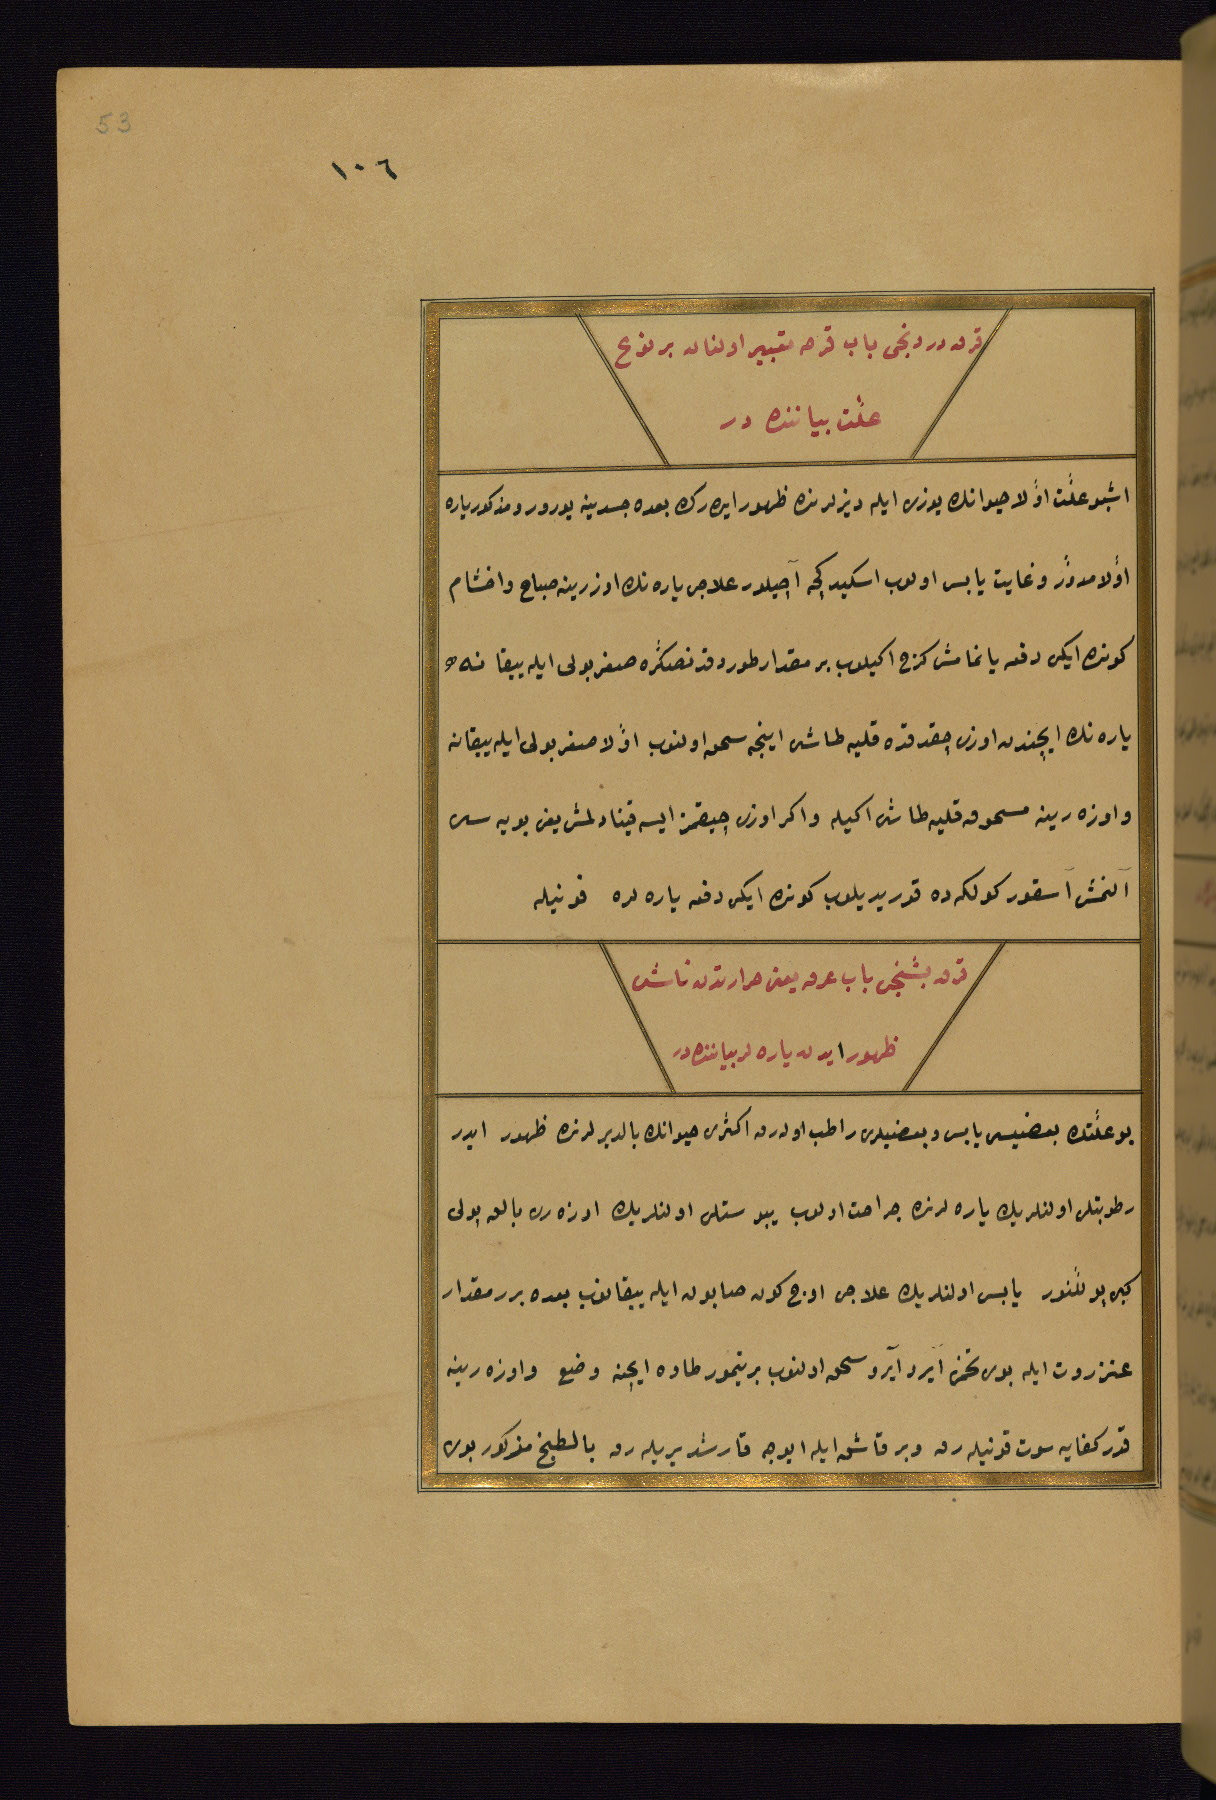 53
١٠٦
قرق دردنجی باب قرحه تعبیر اولنان بر نوع
علّت بیاننده در
اشبو علّت اوّلا حیوانك یوزی ایله دیزلرنده ظهور ایده رك بعده جسدینه یورور و مذكور یاره
اوّلا مدوّر و غایت یابس اولوب اسكیدكجه آچیلور علاجی یاره نك اوزرینه صباح و اخشام
كونده ایكی دفعه یانمامش كرج اكیلوب بر مقدار طوردقدنصكره صغر بولی ایله ییقانه
یاره نك ایچندن اوزی چقدقده قلیه طاشی اینجه سحق اولنوب اوّلا صغر بولی ایله ییقانه
و اوزه رینه مسحوق قلیه طاشی اكیله و اكر اوزی چیقمز ایسه قینادلمش یعنی بویه سی
آلنمش آسقور كولكه ده قوریدیلوب كونده ایكی دفعه یاره لره قونیله
قرق بشنجی باب عرق یعنی حرارتدن ناشی
ظهور ایدن یاره لر بیاننده در
بو علّتك بعضیسی یابس و بعضیلری راطب اوله رق اكثری حیوانك بالدیرلرنده ظهور ایدر
رطوبتلی اولنلرینك یاره لرنده جراحت اولوب یبوستلی اولنلرینك اوزه ری بالق پولی
كبی پوللنور یابس اولنلرینك علاجی اوچ كون صابون ایله ییقانوب بعده برر مقدار
عنزروت ایله بوی تخمی آیرو آیرو سحق اولنوب بر تیمور طاوه ایچنه وضع و اوزه رینه
قدر كفایه سوت قونیله رق و بر قاشق ایله ایوجه قارشدیریله رق بالطبخ مذكور بوی